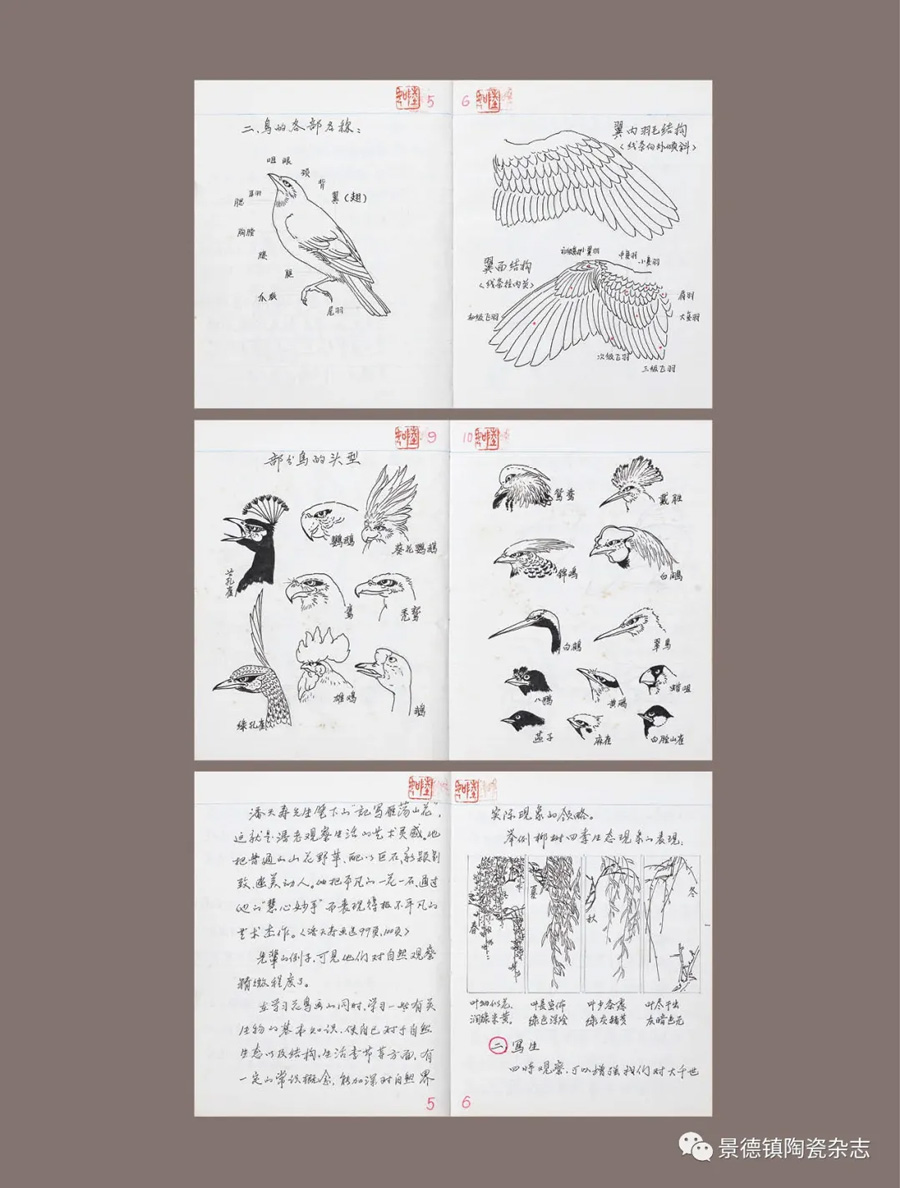 5
二、鸟的各部名称:
咀 眼
颈
背
翼(翅)
耳羽
腮
胸膛
腰
腿
爪
尾羽
6
翼内羽毛结构
翼面结构
小翼羽
中复羽
小复羽
肩羽
大复羽
初级飞羽
次级飞羽
三级飞羽
9
部分鸟的头型
兰孔雀
鹦鹉
葵花鹦鹉
鹰
秃鹫
绿孔雀
雄鸡
鹅
10
鸳鸯
戴胜
锦鸡
白鹇
白鹤
翠鸟
八哥
黄鹂
蜡咀
燕子
麻雀
白脸山雀
潘天寿先生笔下的“记写雁荡山花”,
这就是潘老观察生活的艺术灵感。他
把普通的山花野草、配以巨石,
致、幽美动人。他把平凡的一花一石,通过
他的“慧心妙手”而表现得极不平凡的
艺术杰作。〈潘天寿画选99页,100页〉
先辈的例子,可见他们对自然观察
精微程度了。
在学习花鸟画的同时,学习一些有关
生物的基本知识,使自己对于自然
生态以及结构、生活季节等方面,有
一定的常识概念,能加深对自然界
5
实际现象的领略。
举例柳树四季生态现象的表现:
春
夏
秋
冬
叶细似花,
润绿米黄。
叶长宣佈
绿色深浓
叶少条露
绿灰赭黄
叶尽干出
灰暗色花
二、写生
四时观察,可以增强我们对大千世
6
景德镇陶瓷杂志